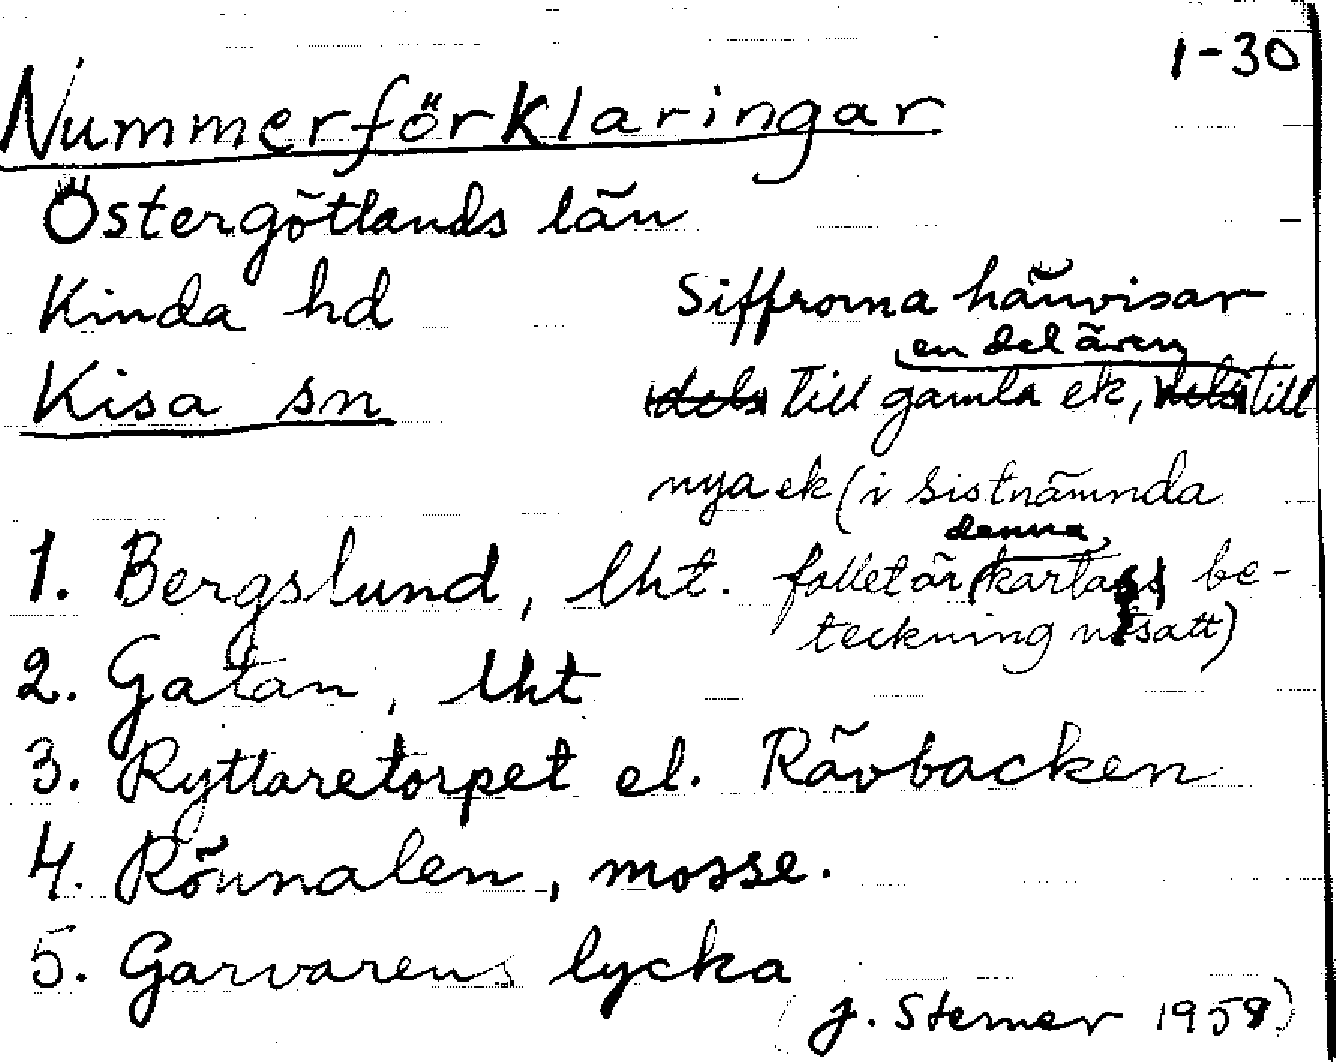 1-30
Nummerförklaringar
Östergötlands län
Kinda hd
Kisa sn
Siffrorna hänvisar
en del även
dels till gamla ek, dels till
nya ek (i sistnämnda
denna
fallet är karta be-
teckning utsatt)
1. Bergslund, lht.
2. Gatan, lht
3. Ryttaretorpet el. Rävbacken
4. Rönnalen, mosse.
5. Garvarens lycka
(J. Sterner 1958)